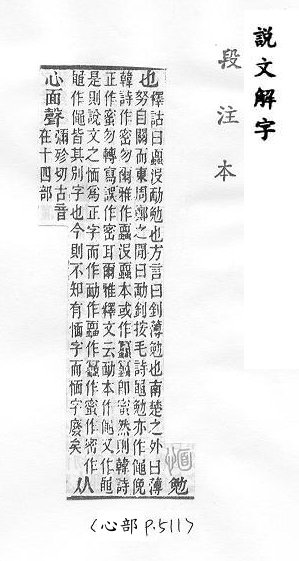 說文解字
段注本
愐 勉
也 釋詁曰蠠沒勔勉也方言曰釗薄勉也南楚之外曰薄
努自關而東周鄭之閒曰勔釗按毛詩黽勉亦作僶俛
韓詩作密勿爾雅作蠠沒蠠本或作卽蜜然則韓詩
正作蜜勿轉寫誤作密耳爾雅釋文云勔本作僶又作黽
是則說文之愐爲正字而作勔作蠠作作蜜作密作
黽作僶皆其別字也今則不知有愐字而愐字廢矣
从
心面聲 彌殄切古音
在十四部
(心部 P.511)